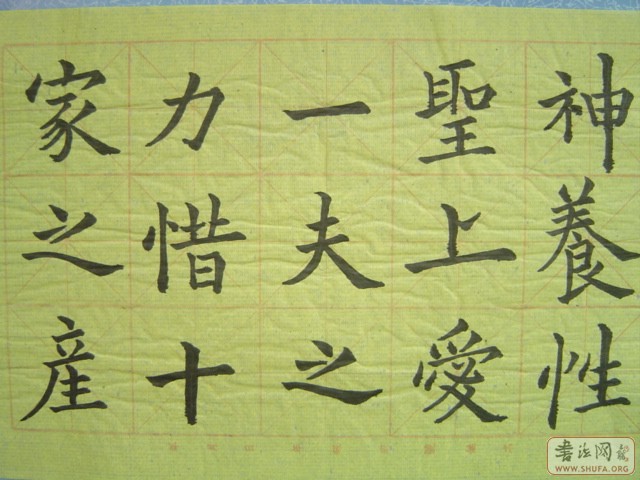 神養性
聖上愛
一夫之
力惜十
家之産
書法网
WWW.SHUFA.ORG